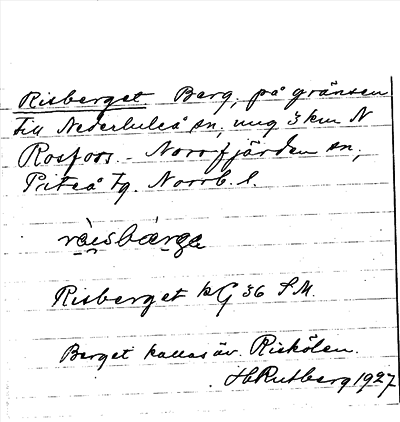 Risberget. Berg, på gränsen
till Nederluleå sn, ung 3 km N
Rosfors. - Norrfjärden sn,
Piteå tg. Norrb. l.
Risberget kG 36 S.M.
Berget kallas äv. Riskölen.
H Rutberg 1927